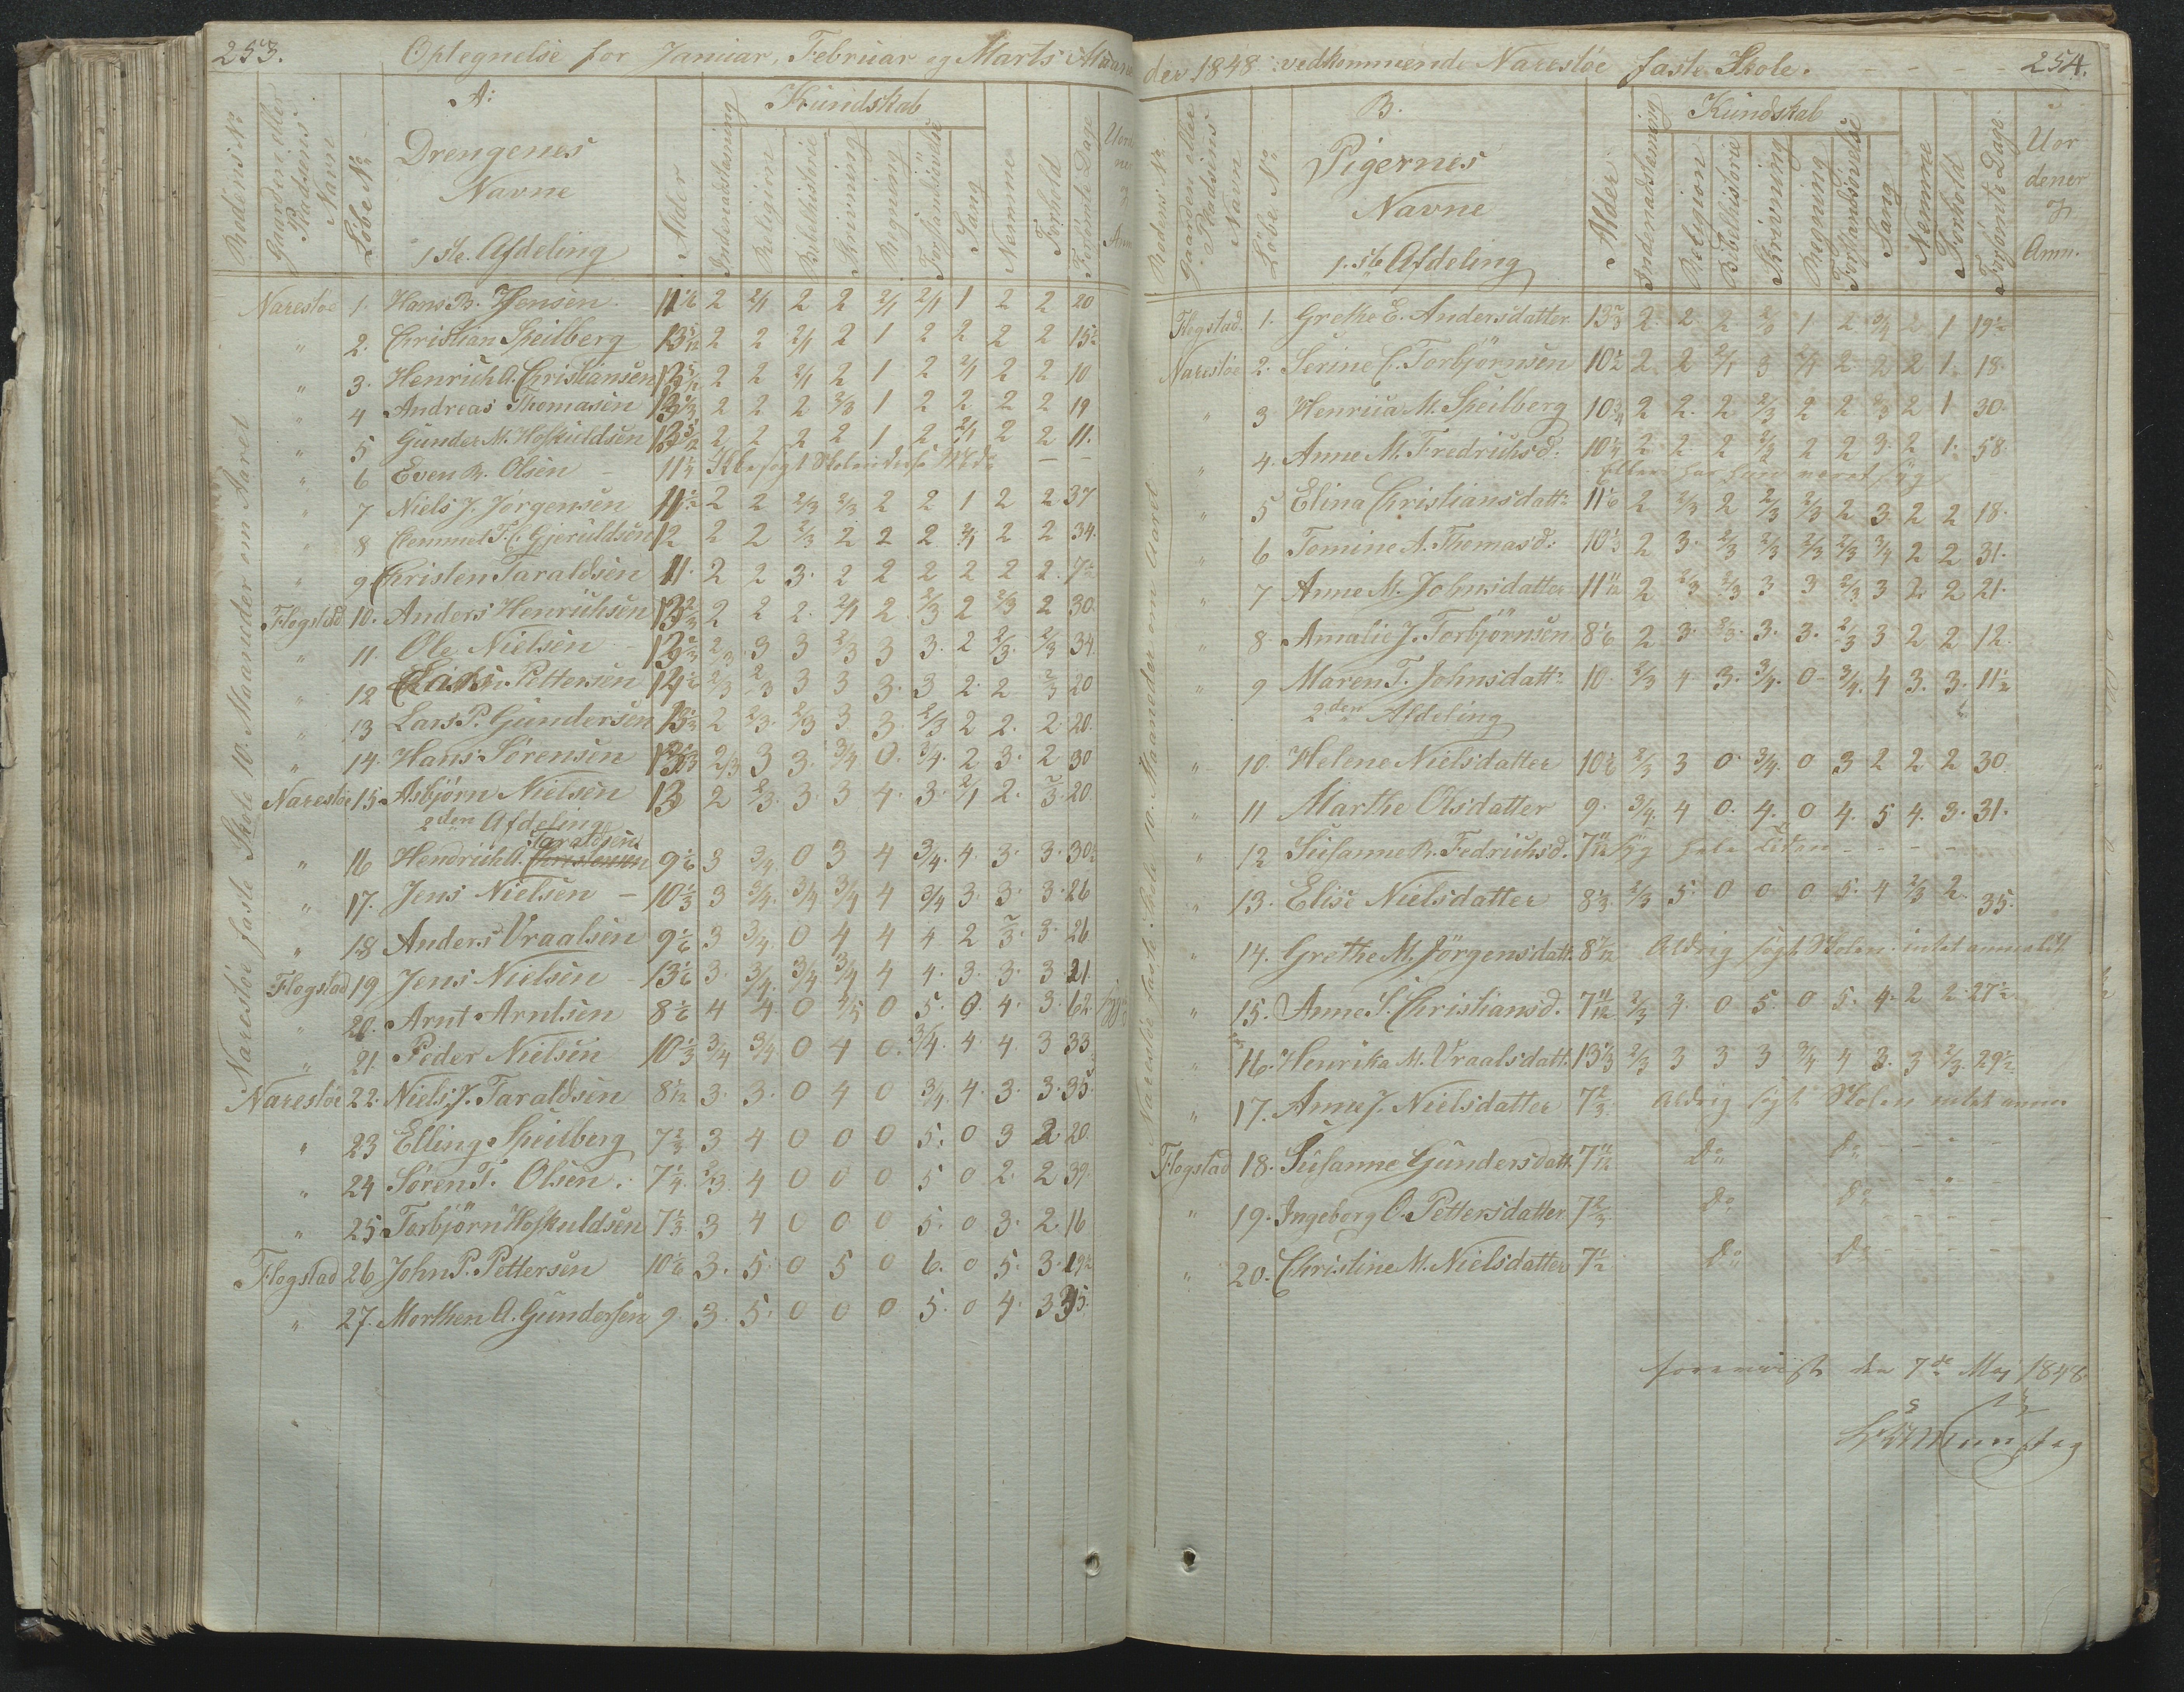 253.
Optegnelse for Januar, Februar og Marts Maane
Rodens No
Gaarden eller Pladsens Navn
Løbe No
A:
Drengenes
Navne
1ste. Afdeling
Alder
Kundskab
Indenadslæsning
Religion
Bibelhistorie
Skrivning
Regning
Forstandsøvelse
Sang
Nemme
Forhold
Forsømte Dage
Narestøe faste Skole 10. Maaneder om Aaret
Narestøe 1. Hans B. Jensen 11 1/6 2 2/1 2 2 2/1 2/1 1 2 2 20
" 2. Christian Speilberg 13 5/12 2 2 2/1 2 1 2 2 2 2 15½
" 3. Henrich A. Christiansen 12 5/12 2 2 2/1 2 1 2 2/1 2 2 10
" 4 Andreas Thomasen 13 1/3 2 2 2 2/3 1 2 2 2 2 19
" 5 Gunder M. Hoskuldsen 13 5/12 2 2 2 2 1 2 2/1 2 2 11.
" 6 Even B. Olsen 11¼
" 7 Niels J. Jørgensen 11½ 2 2 2/3 2/3 2 2 1 2 2 37
" 8 Clemmet T. C. Gjeruldsen 12 2 2 2/3 2 2 2 2/1 2 2 34.
" 9 Christen Taraldsen 11 2 2 3. 2 2 2 2 2 2. 7½
Flogstad 10. Anders Henrichsen 13 2/3 2 2 2. 2/1 2. 2/3 2 2/3 2 30.
" 11. Ole Nielsen 12 2/3 2/3 3 3 2/3 3 3. 2 2/3. 2/3 34.
" 12 Pettersen 14½ 2/3 2/3 3 3 3. 3 2. 2 2/3 20
" 13 Lars P. Gundersen 13 1/3 2 2/3. 2/3 3 3. 2/3 2 2. 2. 20.
" 14. Hans Sørensen 13 2/3 2/3 3 3. 3/4 0. 3/4. 2 3. 2 30
Narestøe 15. Asbjørn Nielsen 13 2 2/3. 3. 3 4. 3. 2/1 2. 2/3. 20
2den Afdeling
Taraldsen
" 16 Hendrich A. Christensen 9 1/6 3 3/4 0 3 4 3/4. 4. 3. 3. 30½
" 17. Jens Nielsen – 10 1/3 3 3/4. 3/4 3/4 4 3/4 3. 3. 3. 26
" 18 Anders Vraalsen 9 1/6 3 3/4. 0 4 4 4. 2 2/3. 3. 26
Flogstad 19 Jens Nielsen – 13 1/6 3. 3/4. 3/4 3/4 4 4. 3. 3. 3. 21.
" 20. Arnt Arntsen 8 1/6 4 4. 0 4/5 0 5. 0. 4. 3. 62.
" 21. Peder Nielsen 10 1/3 3/4 3/4 0 4 0. 3/4. 4. 4. 3 33.
Narestøe 22. Niels J. Taraldsen 8 1/12 3. 3. 0 4 0 3/4. 4. 3. 3. 35.
" 23 Elling Speilberg 7 2/3 3 4 0 0 0 5. 0 3 2 20.
" 24 Søren T. Olsen. 7¼ 2/3. 4 0 0 0 5 0 2. 2 39.
" 25 Torbjørn Hoskuldsen 7 1/3 3 4 0 0 0 5. 0 3. 2. 16
Flogstad 26 John P. Pettersen 10 1/6 3. 5. 0 5 0 6. 0 5. 3. 19½
" 27. Morthen A. Gundersen 9. 3. 5. 0 0 0 5. 0 4. 3 35.
der 1848 vedkommende Narestøe faste Skole. – – – – 254.
Rodens No
Gaarden eller Pladsens Navn
Løbe No
B.
Pigernes
Navne
1.ste Afdeling
Alder
Kundskab
Indenadslæsning
Religion
Bibelhistorie
Skrivning
Regning
Forstandsøvelse
Sang
Nemme
Forhold
Forsømte Dage
Uor
dener
og
Anm.
Narestøe faste Skole 10. Maaneder om Aaret
Flogstad. 1. Grethe E. Andersdatter 13 2/3 2. 2. 2. 2/3 1 2 3/4 2 1 19½
Narestøe 2. Serine C. Torbjørnsen 10½ 2 2 2/1 3 2/1 2. 2 2 1. 18.
" 3 Henrica M. Speilberg 10¾ 2 2. 2 2/3 2 2 2/3 2 1 30.
" 4. Anne M. Fredrichsd. 10¼ 2. 2 2 2/3 2 2 3. 2 1. 58.
" 5 Elina Christiansdattr 11 1/6 2 2/3 2 2/3 2/3 2 3. 2 2 18.
" 6 Tomine A. Thomasd: 10 1/3 2 3. 2/3 2/3 2/3 2/3 3/4 2 2 31.
" 7 Anne M. Johnsdatter 11 11/12 2 2/3 2/3 3 3 2/3 3 2 2 21.
" 8. Amalie J. Torbjørnsen 8 1/6 2 3. 2/3. 3. 3. 2/3 3 2 2 12.
" 9 Maren T. Johnsdattr 10 2/3 4 3. 3/4. 0 3/4. 4 3. 3. 11½
2den Afdeling
" 10. Helene Nielsdatter 10 1/6 2/3 3 0 3/4. 0 3 2 2 2 30.
" 11 Marthe Olsdatter 9. 3/4. 4 0. 4. 0 4. 5 4. 3. 31.
" 12 Susanne B. Fedrichsd. 7 11/12 syg hele Tiden – – – –
" 13. Elise Nielsdatter 8 1/3 2/3 5. 0 0 0 5. 4 2/3 2. 35.
" 14. Grethe M. Jørgensdatt. 8 1/12 Aldrig søgt Skolen intet anmeldt
" 15. Anne S. Christiansd. 7 11/12 2/3 4. 0 5. 0 5. 4. 2 2. 27½
" 16. Henrika M. Vraalsdatt. 13 1/3 2/3 3 3 3 3/4 4 3. 3 2/3. 29½
" 17. Anne J. Nielsdatter 7 2/3. Aldrig søgt Skolen intet anm
Flogstad 18. Susanne Gundersdatt. 7 11/12 Do Do – – –
" 19. Ingeborg O. Pettersdatter 7 2/3 Do Do – – –
" 20. Christine M. Nielsdatter 7½ Do Do – – –
foreviist den 7de Maj 1848.